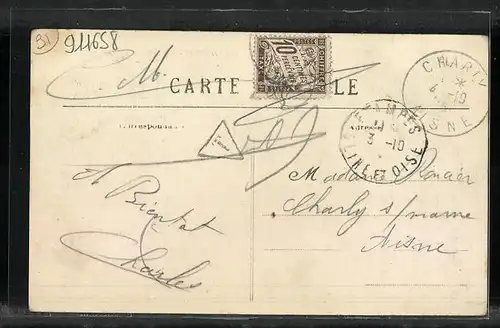 31 911658
C.M.
CARTE
LE
10
CHARLY
6 -10
AISNE
ETAMPES
3 -10
SEINE ET OISE
Correspondance
Adresse
A Bientot
Charles
Madame
Charly s/marne
Aisne